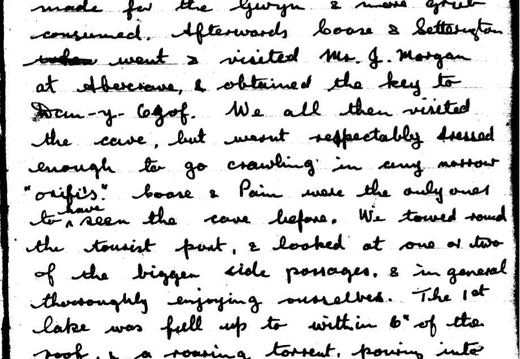 made for the Gwyn & more grub
consumed. Afterwards Coase & Setterington
went & visited Mr. J. Morgan
at Abercrave, & obtained the key to
Dan-y-Ogof. We all then visited
the cave, but wernt respectably dressed
enough to go crawling in any narrow
"orifi's" Coase & Pain were the only ones
to have seen the cave before. We towed round
the tourist part, & looked at one or two
of the bigger side passages, & in general
thoroughly enjoying ourselves. The 1st
lake was full up to within 6" of the
roof, & a roaring torrent, pouring into